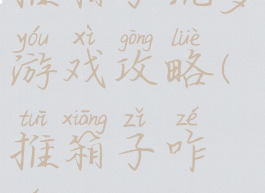 yóu xì gōng lüè
游戏攻略(
tuī xiāng zǐ zé
推箱子咋